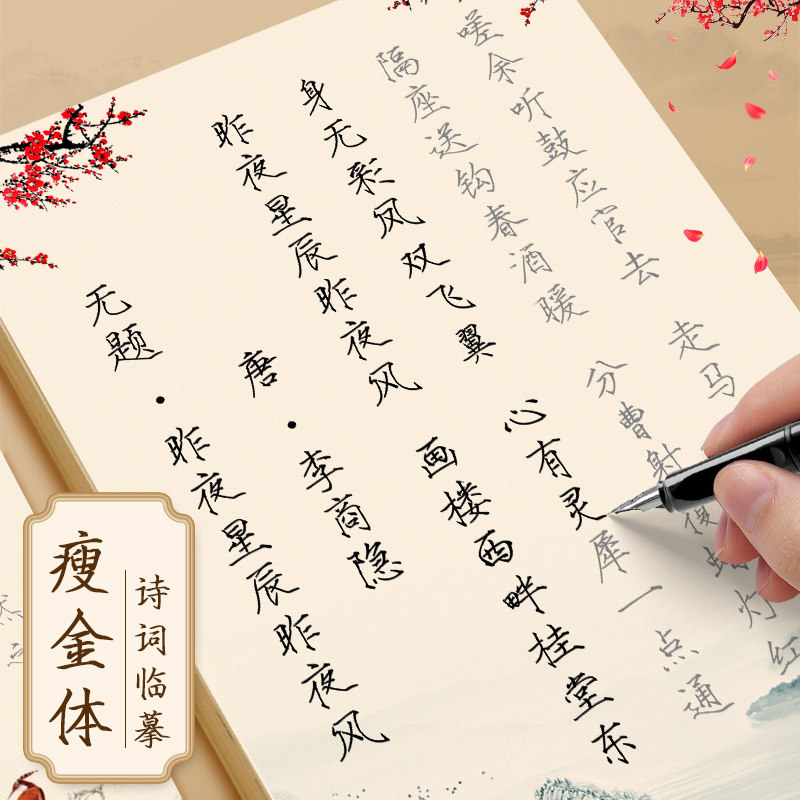 无题·昨夜星辰昨夜风
唐·李商隐
昨夜星辰昨夜风
画楼西畔桂堂东
身无彩凤双飞翼
心有灵犀一点通
隔座送钩春酒暖
分曹射覆蜡灯红
嗟余听鼓应官去
走马
瘦金体
诗词临摹